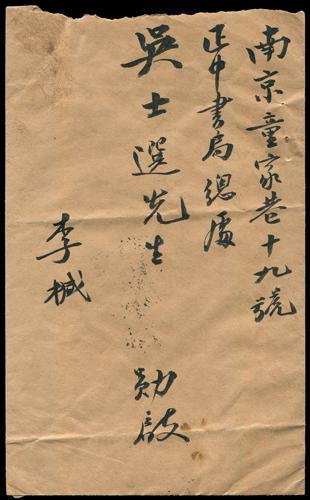 南京童家巷十九號
正中書局總處
吳士選先生 勛啟
李